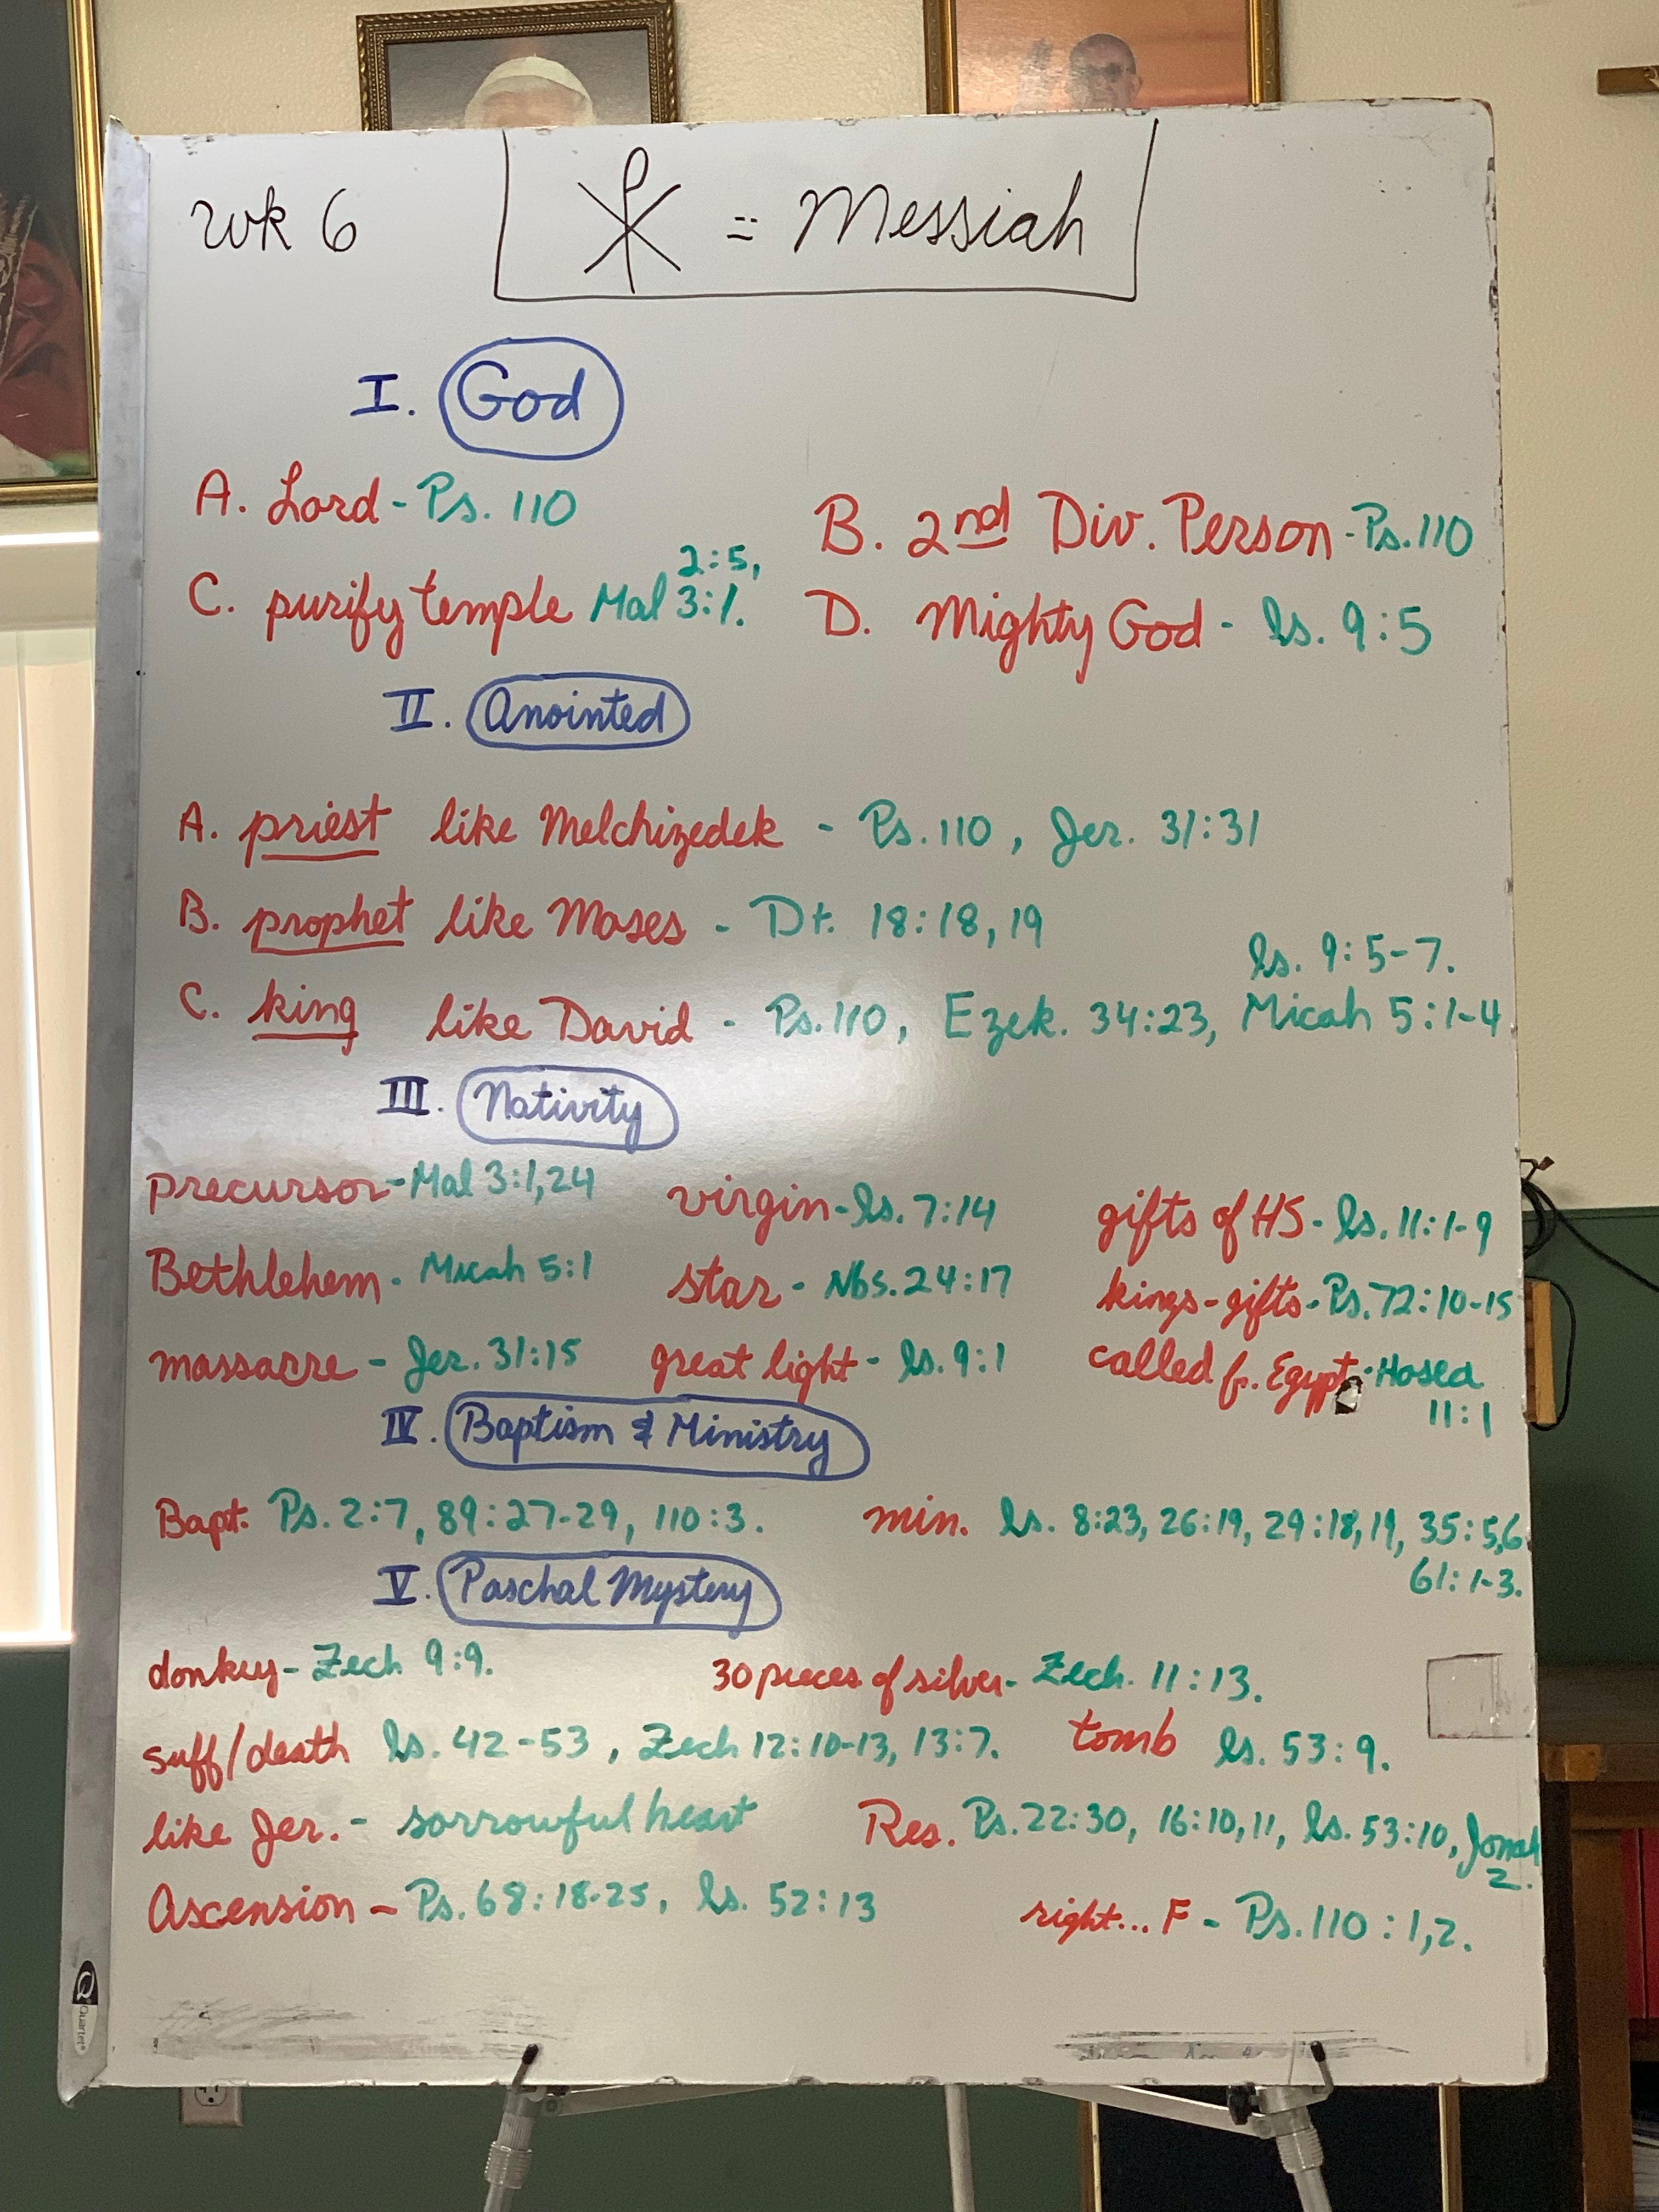 Wk 6
☧ = Messiah
I. God
A. Lord - Ps. 110
B. 2nd Div. Person - Ps. 110
C. purify temple Mal 2:5, 3:1.
D. Mighty God - Is. 9:5
II. Anointed
A. priest like Melchizedek - Ps. 110, Jer. 31:31
B. prophet like Moses - Dt. 18:18,19
C. king like David - Ps. 110, Ezek. 34:23, Is. 9:5-7. Micah 5:1-4
III. Nativity
precursor - Mal 3:1,24
virgin - Is. 7:14
gifts of HS - Is. 11:1-9
Bethlehem - Micah 5:1
star - Nbs. 24:17
kings - gifts - Ps. 72:10-15
massacre - Jer. 31:15
great light - Is. 9:1
called fr. Egypt - Hosea
11:1
IV. Baptism & Ministry
Bapt. Ps. 2:7, 89:27-29, 110:3.
min. Is. 8:23, 26:19, 29:18,19, 35:5,6
61:1-3.
V. Paschal Mystery
donkey - Zech 9:9.
30 pieces of silver - Zech. 11:13.
suff/death Is. 42-53, Zech 12:10-13, 13:7.
tomb Is. 53:9.
like Jer. - sorrowful heart
Res. Ps. 22:30, 16:10,11, Is. 53:10, Jonah
2.
Ascension - Ps. 68:18-25, Is. 52:13
right... F - Ps. 110:1,2.
Quartet